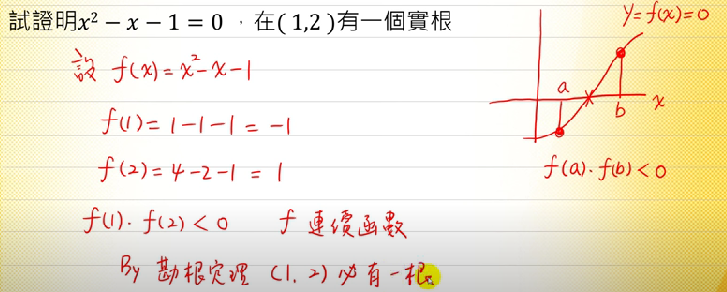 試證明x² − x − 1 = 0 ，在( 1,2 )有一個實根
設 f(x) = x²-x-1
f(1) = 1-1-1 = -1
f(2) = 4-2-1 = 1
f(1)·f(2) < 0 f 連續函數
By 勘根定理 (1, 2) 必有一根
y=f(x)=0
a
b
x
f(a)·f(b)<0